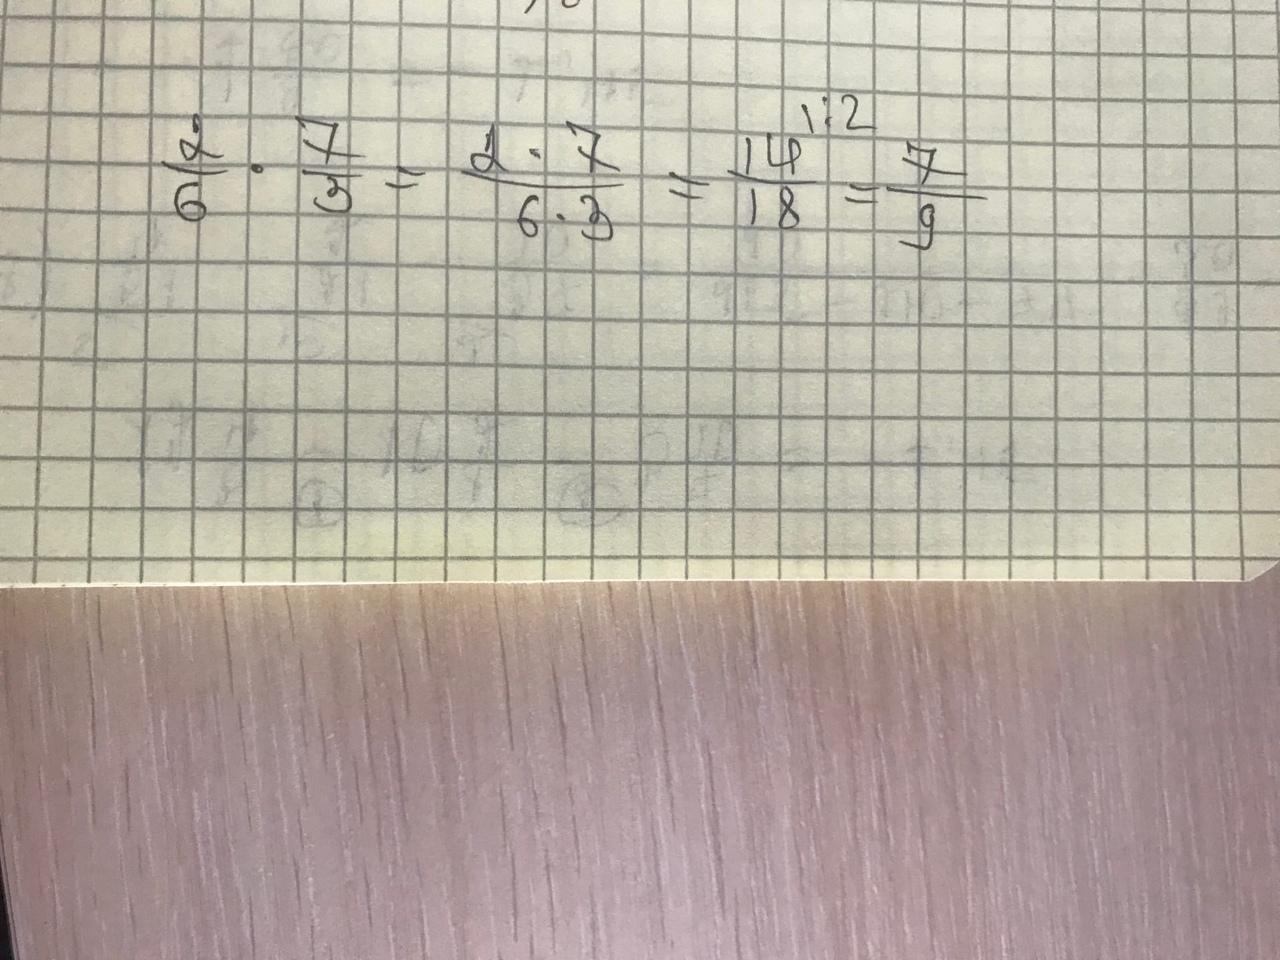 2/6 · 7/3 = 2 · 7/6 · 3 = 14/18 |:2 = 7/9